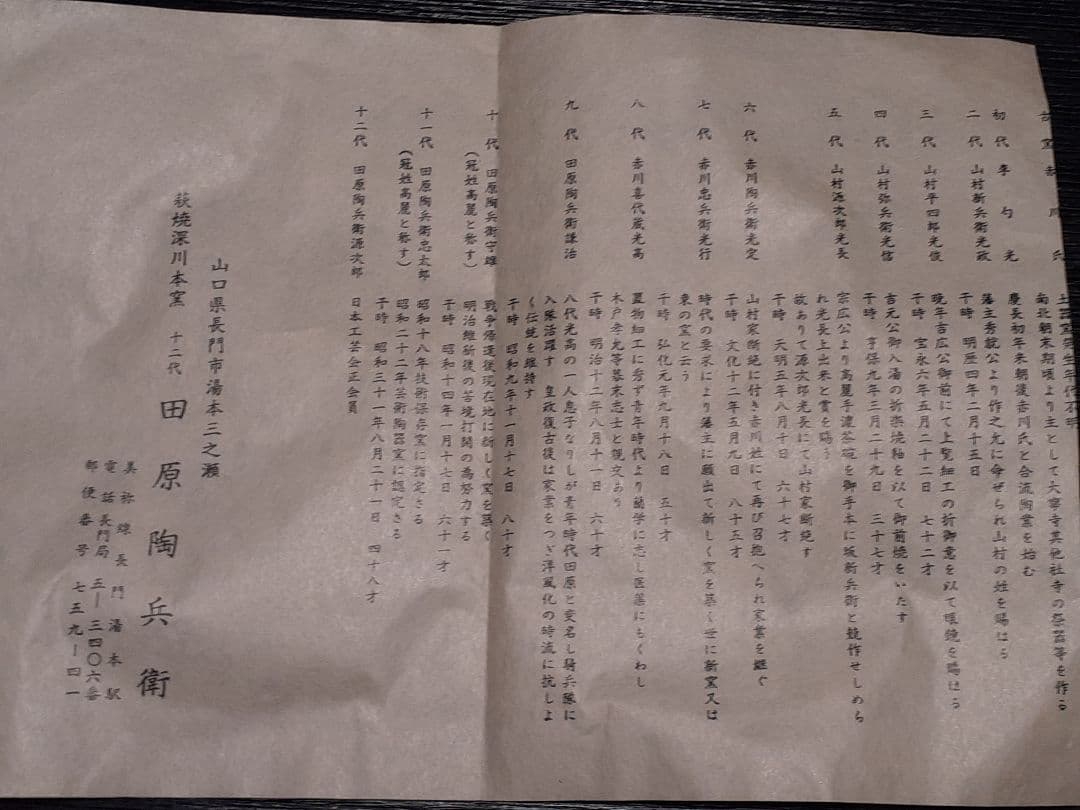 古窯赤川氏
土器窯 弥生年代不明
南北朝末期頃より主として大寧寺其他社寺の祭器等を作る
初代 李勺光
慶長初年来朝後赤川氏と合流陶業を始む
二代 山村新兵衛光政
藩主秀就公より作之允に命ぜられ山村の姓を賜はる
干時 明歴四年二月十五日
三代 山村平四郎光俊
晩年吉広公御前にて上覧細工の折御意を以て眼鏡を賜はる
干時 宝永六年五月二十二日 七十二才
四代 山村弥兵衛光信
吉元公御入湯の折楽焼釉を以て御前焼をいたす
干時 享保九年三月二十九日 三十七才
五代 山村源次郎光長
宗広公より高麗手濃茶碗を御手本に坂新兵衛と競作せしめら
れ光長上出来と賞を賜う
故ありて源次郎光長にて山村家断絶す
干時 天明五年八月十日 六十七才
六代 赤川陶兵衛光定
山村家断絶に付き赤川姓にて再び召抱へられ家業を継ぐ
干時 文化十二年五月九日 八十五才
七代 赤川忠兵衛光行
時代の要求により藩主に願出て新しく窯を築く世に新窯又は
東の窯と云う
干時 弘化元年九月十八日 五十才
八代 赤川喜代蔵光高
置物細工に秀ず青年時代より蘭学に志し医薬にもくわし
木戸孝允等幕末志士と親交あり
干時 明治十二年八月十一日 六十才
九代 田原陶兵衛謙治
八代光高の一人息子なりしが青年時代田原と変名し騎兵隊に
入隊活躍す 皇政復古後は家業をつぎ洋風化の時流に抗しよ
く伝統を維持す
干時 昭和九年十一月十七日 八十才
十代 田原陶兵衛守雄
(冠姓高麗と称す)
戦争帰還後現在地に新しく窯を築く
明治維新後の苦境打開の為努力する
干時 昭和十四年一月十七日 六十一才
十一代 田原陶兵衛忠太郎
(冠姓高麗と称す)
昭和十八年技術保存窯に指定さる
昭和二十二年芸術陶器窯に認定さる
干時 昭和三十一年八月二十一日 四十八才
十二代 田原陶兵衛源次郎
日本工芸会正会員
山口県長門市湯本三之瀬
萩焼深川本窯 十二代 田原陶兵衛
美祢線長門湯本駅
電話長門局 五―三四〇六番
郵便番号 七五九―四一